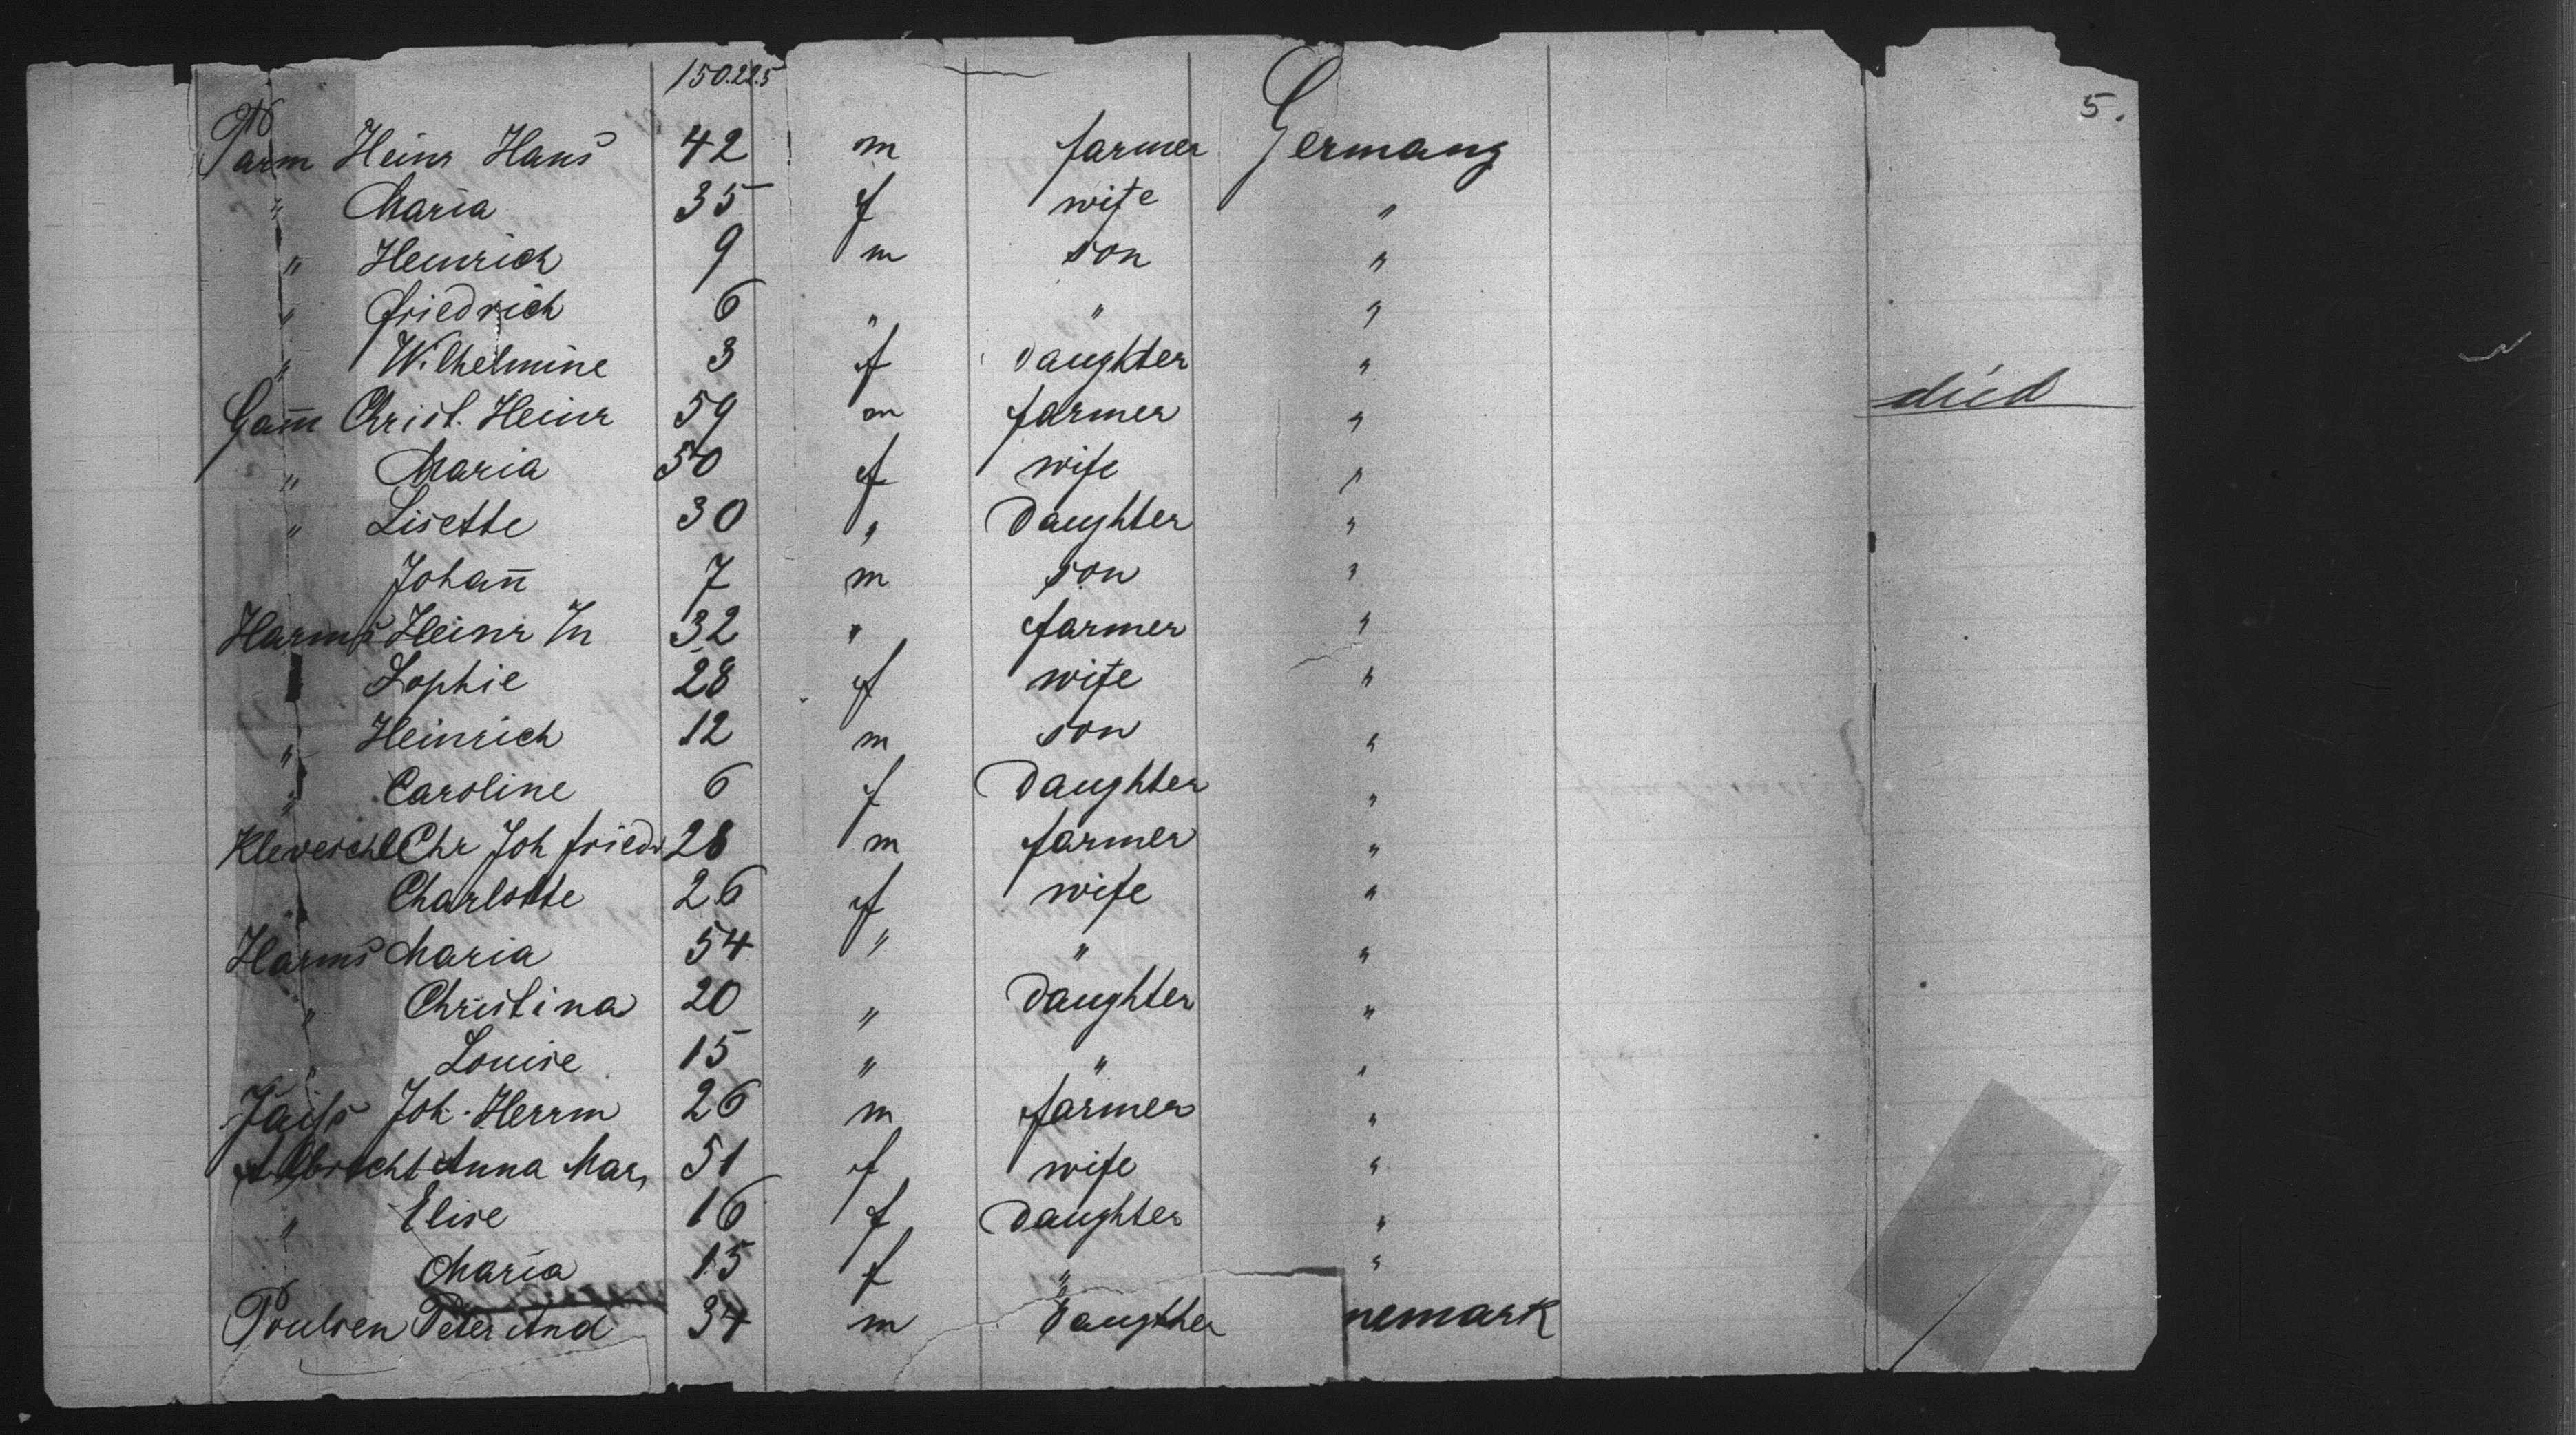 150.225
5.
Parm Heinr Hans 42 m farmer Germany
" Maria 35 f wife "
" Heinrich 9 m son "
" Friedrich 6 " " "
" Wilhelmine 3 f Daughter " died
Gam̅ Christ. Heinr 59 m farmer "
" Maria 50 f wife "
" Lisette 30 " Daughter "
Johan̅ 7 m son "
Harms Heinr Jn 32 " farmer "
Sophie 28 f wife "
" Heinrich 12 m son "
" Caroline 6 f Daughter "
Chr Joh Friedr 28 m farmer "
Charlotte 26 f wife "
Harms Maria 54 " " "
" Christina 20 " Daughter "
" Louise 15 " " "
Joh. Herrm 26 m farmer "
Albrecht Anna Mar, 51 f wife "
" Elise 16 f Daughter "
Maria 15 f " "
Poulsen Peter And 34 m Daugther nemark